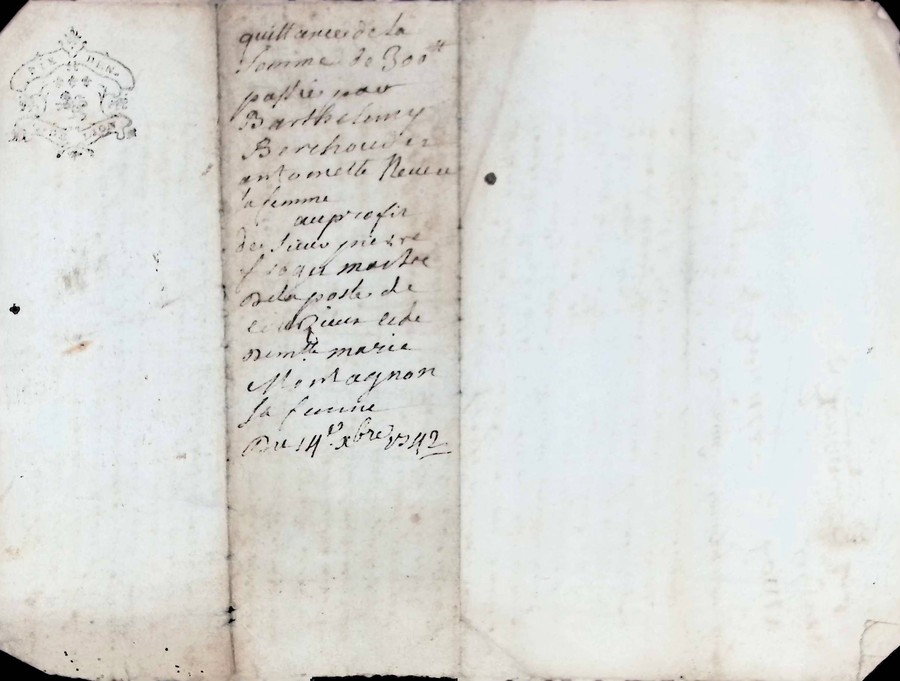 SIX DEN.
quittance de la
somme de 300 tt
passée par
Barthelemy
Berchoud et
antoinette
sa femme
au profit
de sieur pierre
maitre
de la poste de
et de
Demlle marie
Montagnon
sa femme
Du 14e xbre 1742